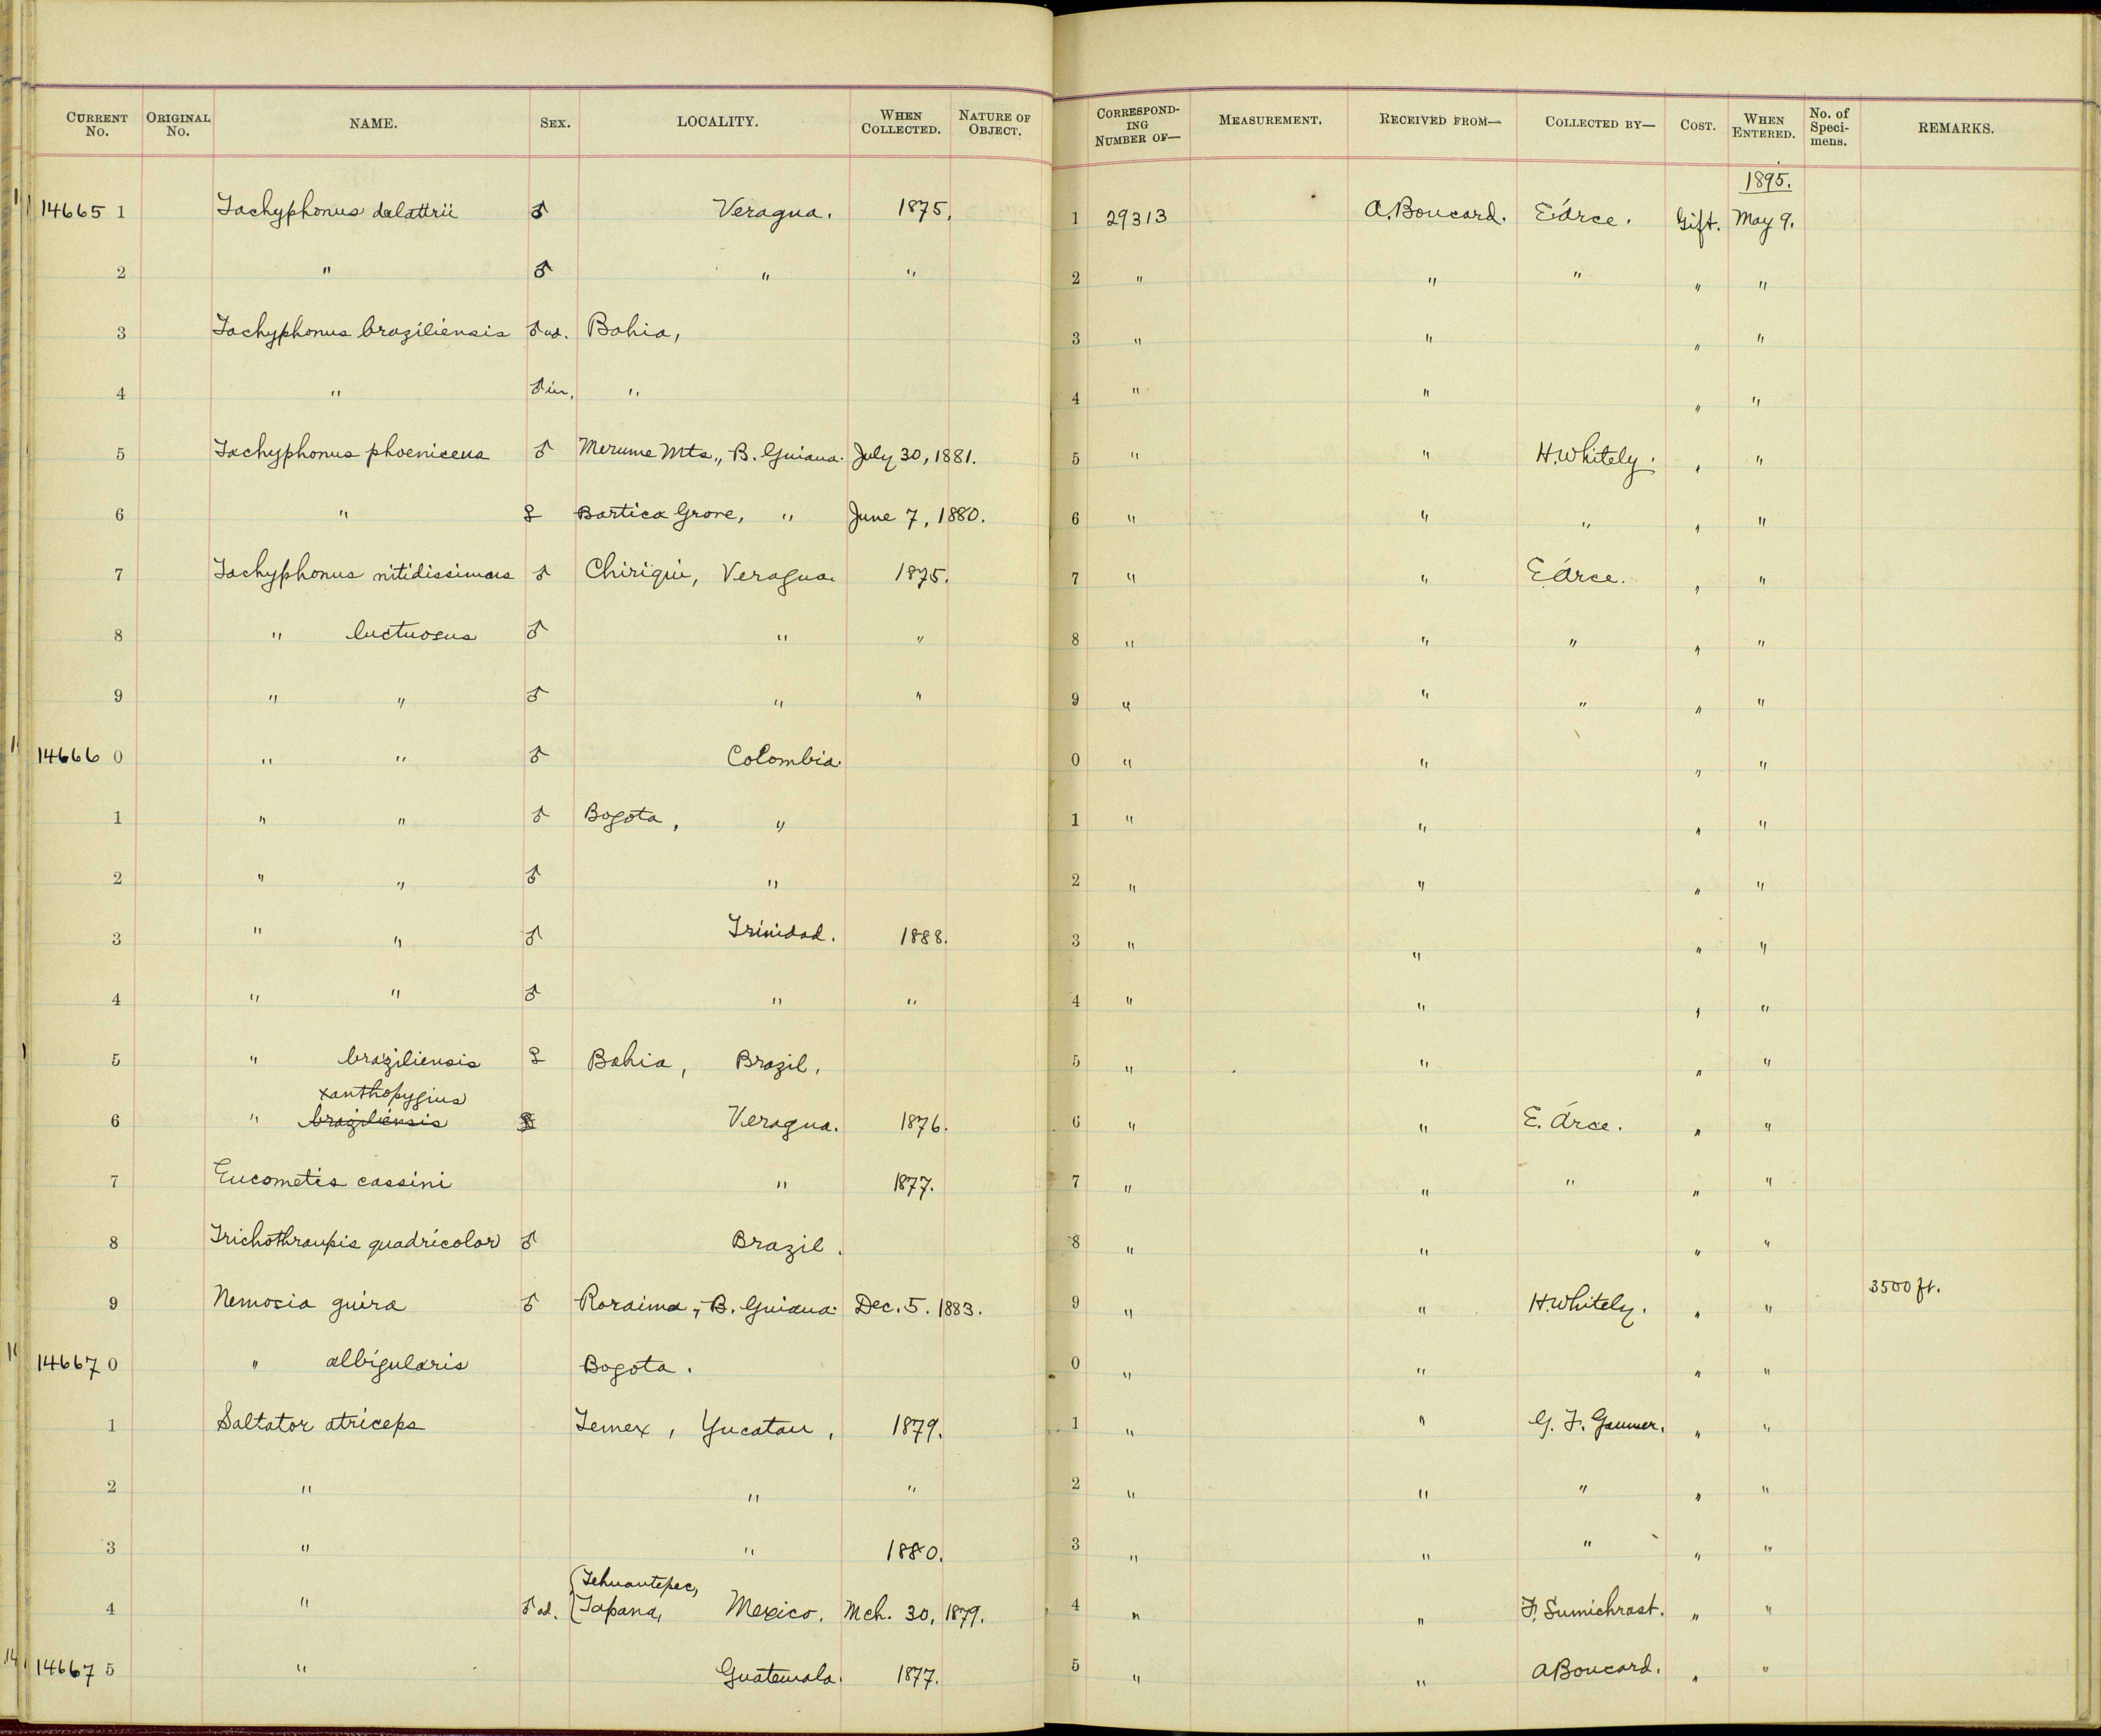 CURRENT No. ORIGINAL No. NAME. SEX. LOCALITY. WHEN COLLECTED. NATURE OF OBJECT. CORRESPONDING NUMBER OF— MEASUREMENT. RECEIVED FROM— COLLECTED BY— COST. WHEN ENTERED. No. of Specimens. REMARKS.
1895.
14665 1 Tachyphonus delattrii ♂ Veragua. 1875. 1 29313 A. Boucard. E. Árce. Gift. May 9.
2 " ♂ " " 2 " " " " "
3 Tachyphonus braziliensis ♂ ad. Bahia, 3 " " " "
4 " ♂ im. " 4 " " " "
5 Tachyphonus phoeniceus ♂ Merume Mts., B. Guiana. July 30, 1881. 5 " " H. Whitely. " "
6 " ♀ Bartica Grove, " June 7, 1880. 6 " " " " "
7 Tachyphonus nitidissimus ♂ Chiriqui, Veragua. 1875. 7 " " E. Árce. " "
8 " luctuosus ♂ " " 8 " " " " "
9 " " ♂ " " 9 " " " " "
14666 0 " " ♂ Colombia. 0 " " " "
1 " " ♂ Bogota, " 1 " " " "
2 " " ♂ " 2 " " " "
3 " " ♂ Trinidad. 1888. 3 " " " "
4 " " ♂ " " 4 " " " "
5 " braziliensis ♀ Bahia, Brazil, 5 " " " "
xanthopygius
6 " braziliensis Veragua. 1876. 6 " " E. Árce. " "
7 Eucometis cassini " 1877. 7 " " " " "
8 Trichothraupis quadricolor ♂ Brazil. 8 " " " "
9 Nemosia guira ♂ Roraima, B. Guiana. Dec. 5. 1883. 9 " " H. Whitely. " " 3500 ft.
14667 0 " albigularis Bogota. 0 " " " "
1 Saltator atriceps Temex, Yucatan, 1879. 1 " " G. F. Gaumer. " "
2 " " " 2 " " " " "
3 " " 1880. 3 " " " " "
Tehuantepec,
4 " ♂ ad. Tapana, Mexico. Mch. 30, 1879. 4 " " F. Sumichrast. " "
14667 5 " Guatemala. 1877. 5 " " A Boucard. " "